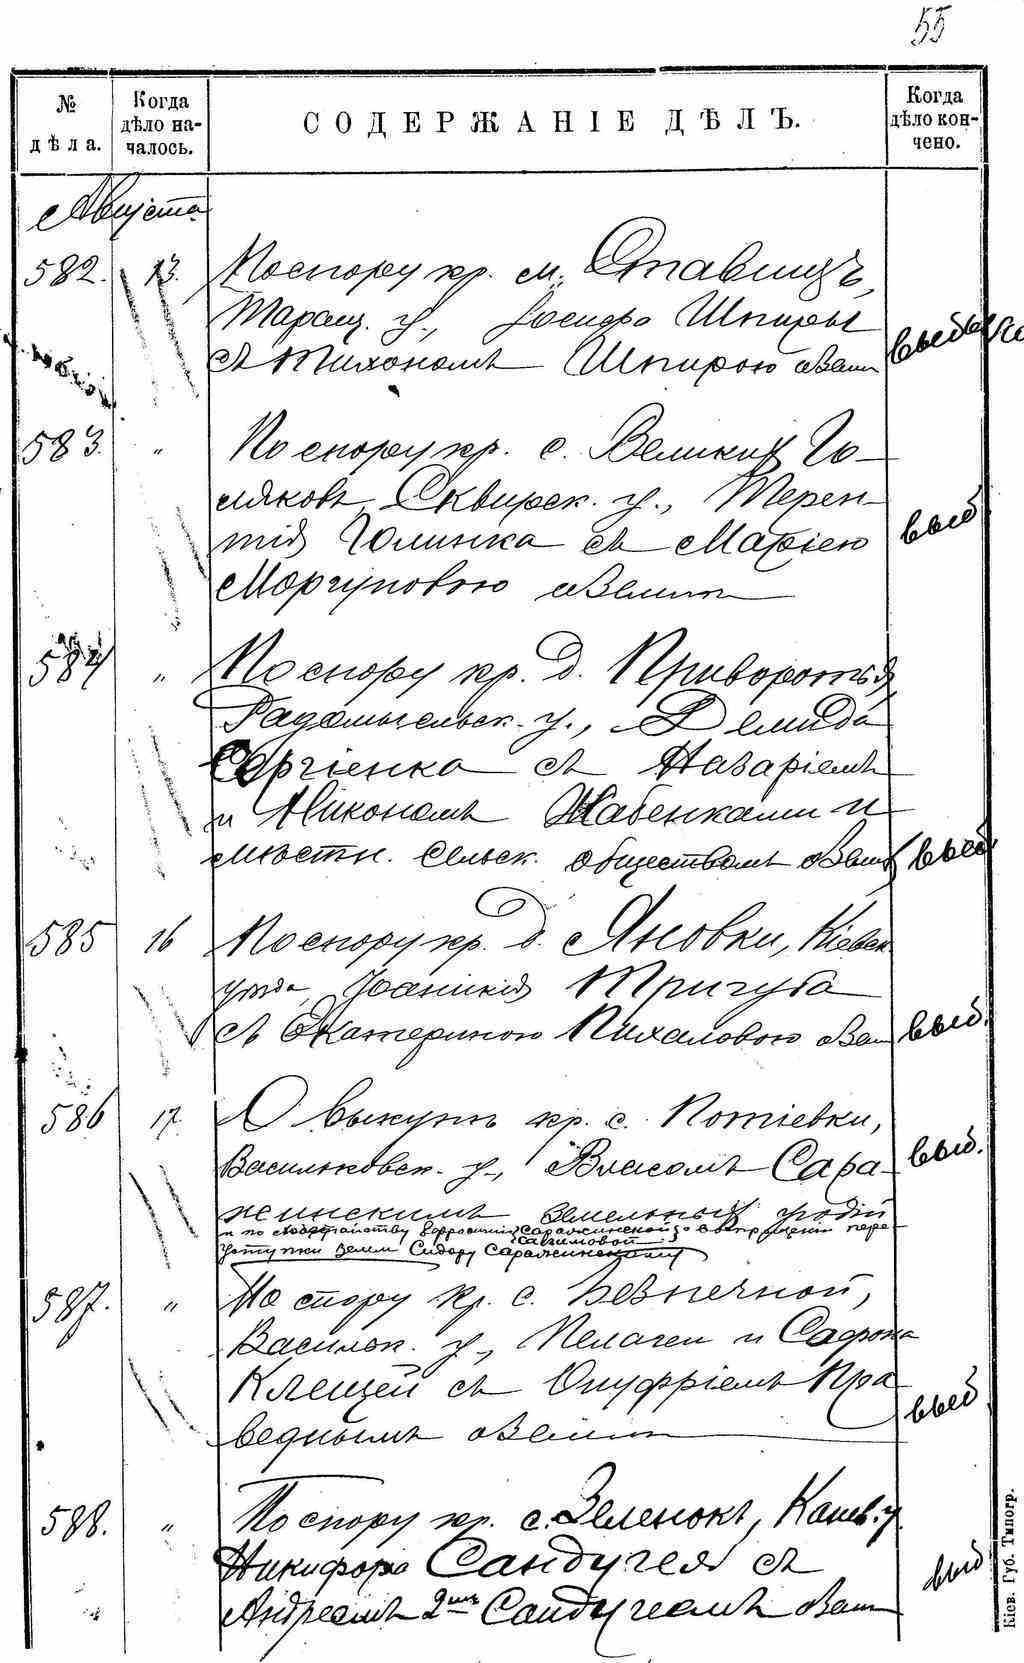 55
№ дѣла.
Когда дѣло началось.
СОДЕРЖАНІЕ ДѢЛЪ.
Когда дѣло кончено.
Августа
582. 13. По спору кр. м. Ставищъ,
Таращ. у., Іосифа Шпиры
съ Тихономъ Шпирою о земл
выб
583. " По спору кр. с. Великих Го-
ляковъ, Сквирск. у., Терен-
тія Голинка съ Маріею
выб
Моргуновою о земли
584 " По спору кр. д. Приворотья,
Радомысльск. у., Демида
Сергіенка съ Назаріемъ
и Никономъ Жабенками и
мѣстн. сельск. обществомъ о земл
выб
585 16 По спору кр. д. Яновки, Кіевск.
уѣзда, Іоанникія Тригуба
съ Екатериною Пихаловою о зем
выб.
586 17. О выкупѣ кр. с. Потіевки,
Васильковск. у., Власомъ Сара-
выб.
жинскимъ земельных угодій
и по ходатайству Саражинской о возвращеніи пере-
уступки земли Сидору Саражинскому
587. " По спору кр. с. Безпечной,
Васильк. у., Пелагеи и Софрона
Клещей съ Онуфріемъ Пра-
выб
веднымъ о земли
588. " По спору кр. с. Зеленокъ, Канев. у.
Никифора Сандугея съ
выб
Андреемъ 2мъ Сандугеемъ о зем
Кіев. Губ. Типогр.